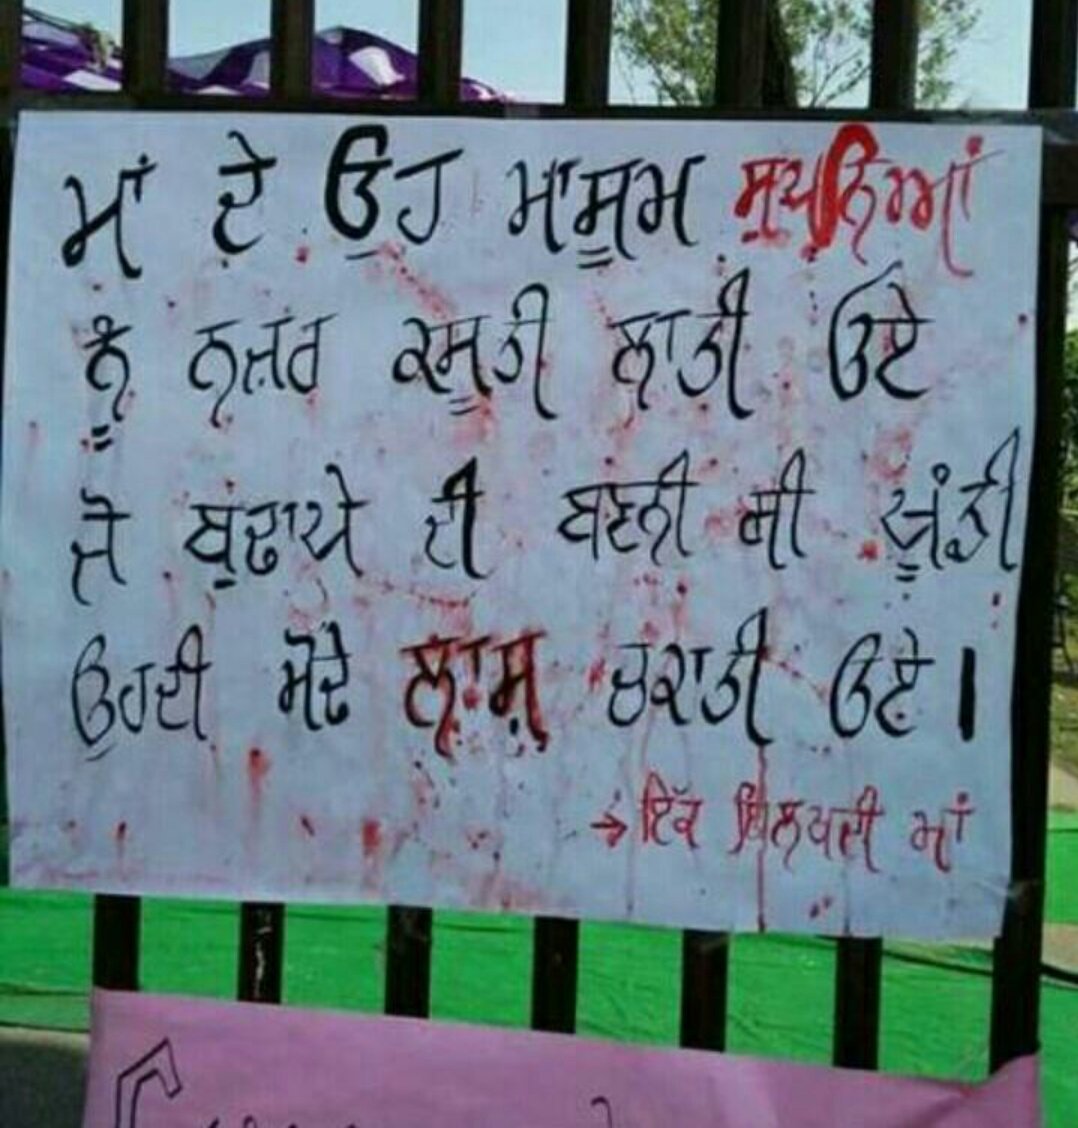 ਮਾਂ ਦੇ ਉਹ ਮਾਸੂਮ ਸੁਪਨਿਆਂ
ਨੂੰ ਨਜ਼ਰ ਕਸੂਤੀ ਲਾਤੀ ਓਏ
ਜੋ ਬੁਢਾਪੇ ਦੀ ਬਣਨੀ ਸੀ ਖੂੰਡੀ
ਉਹਦੀ ਮੋਢੇ ਲਾਸ਼ ਚਕਾਤੀ ਓਏ।
→ ਇੱਕ ਵਿਲਖਦੀ ਮਾਂ